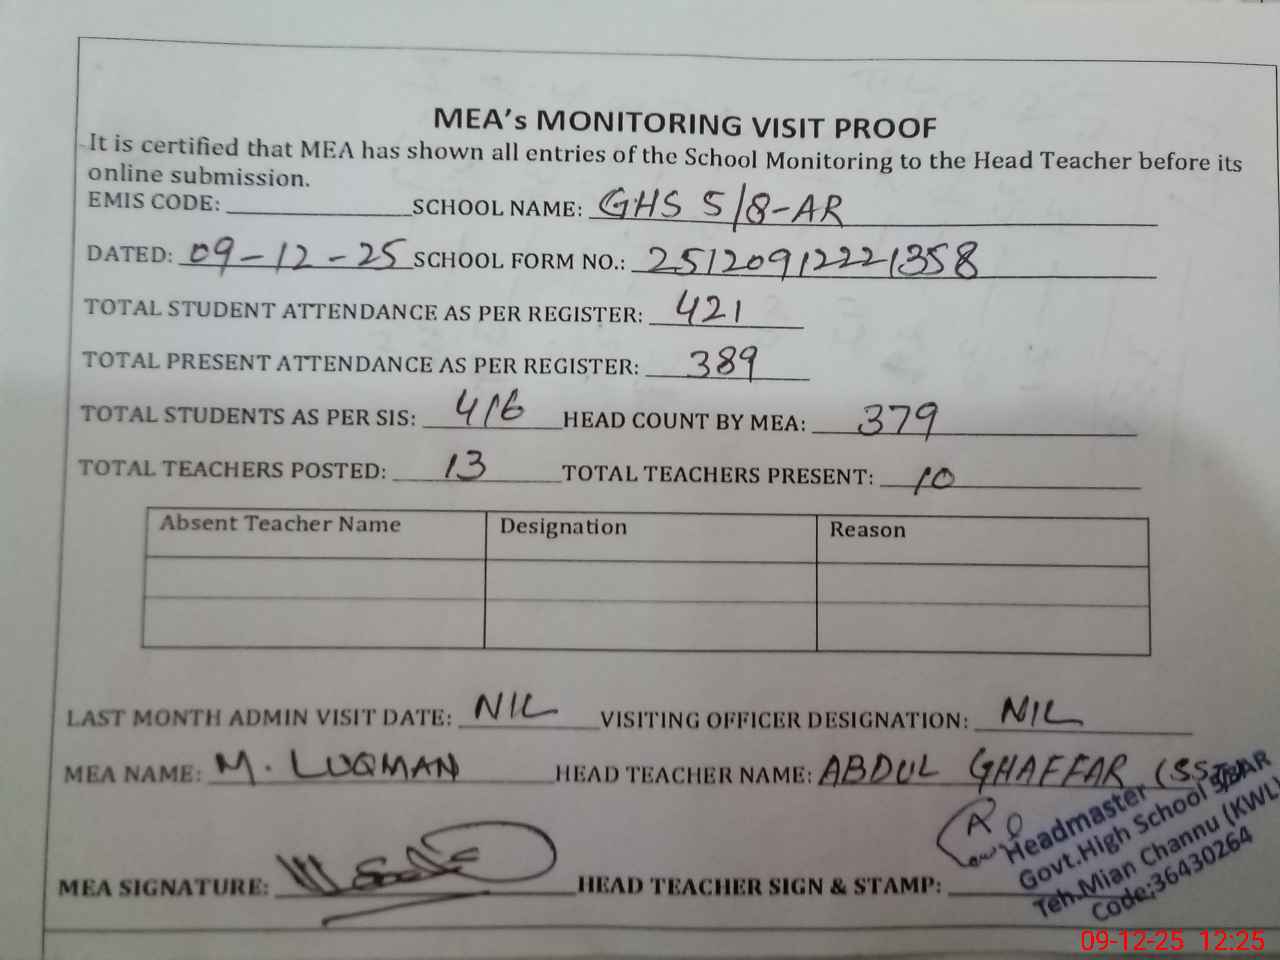 MEA's MONITORING VISIT PROOF
It is certified that MEA has shown all entries of the School Monitoring to the Head Teacher before its
online submission.
EMIS CODE: ____________ SCHOOL NAME: GHS 5/8-AR
DATED: 09-12-25 SCHOOL FORM NO.: 25120912221358
TOTAL STUDENT ATTENDANCE AS PER REGISTER: 421
TOTAL PRESENT ATTENDANCE AS PER REGISTER: 389
TOTAL STUDENTS AS PER SIS: 416 HEAD COUNT BY MEA: 379
TOTAL TEACHERS POSTED: 13 TOTAL TEACHERS PRESENT: 10
Absent Teacher Name Designation Reason
LAST MONTH ADMIN VISIT DATE: NIL VISITING OFFICER DESIGNATION: NIL
MEA NAME: M. LUQMAN HEAD TEACHER NAME: ABDUL GHAFFAR
MEA SIGNATURE: HEAD TEACHER SIGN & STAMP:
Headmaster
Govt.High School 5/8AR
Teh.Mian Channu (KWL)
Code;36430264
09-12-25 12:25